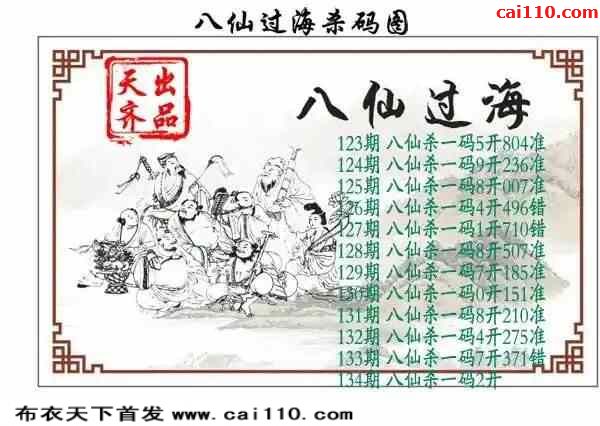 八仙过海杀码图
cai110.com
天齐
出品
八仙过海
123期 八仙杀一码5开804准
124期 八仙杀一码9开236准
125期 八仙杀一码8开007准
126期 八仙杀一码4开496错
127期 八仙杀一码1开710错
128期 八仙杀一码8开507准
129期 八仙杀一码7开185准
130期 八仙杀一码0开151准
131期 八仙杀一码8开210准
132期 八仙杀一码4开275准
133期 八仙杀一码7开371错
134期 八仙杀一码2开
布衣天下首发 www.cai110.com